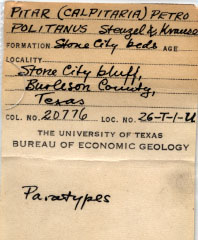 PITAR (CALPITARIA) PETRO
POLITANUS Stenzel & Krause
FORMATION Stone City beds AGE
LOCALITY
Stone City bluff,
Burleson County,
Texas
COL. NO. 20776 LOC. NO. 26-T-1-U
THE UNIVERSITY OF TEXAS
BUREAU OF ECONOMIC GEOLOGY
Paratypes